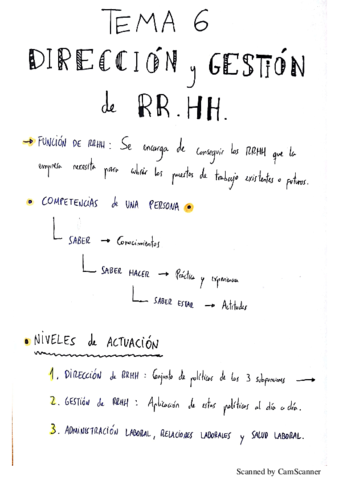 TEMA 6
DIRECCIÓN y GESTIÓN
de RR.HH.
→ FUNCIÓN DE RRHH : Se encarga de conseguir los RRHH que la
empresa necesita para cubrir los puestos de trabajo existentes o futuros.
• COMPETENCIAS de UNA PERSONA •
SABER → Conocimientos
SABER HACER → Práctica y experiencia
SABER ESTAR → Actitudes
• NIVELES de ACTUACIÓN
1. DIRECCIÓN de RRHH : Conjunto de políticas de las 3 subfunciones →
2. GESTIÓN de RRHH : Aplicación de estas políticas al día a día.
3. ADMINISTRACIÓN LABORAL, RELACIONES LABORALES y SALUD LABORAL.
Scanned by CamScanner